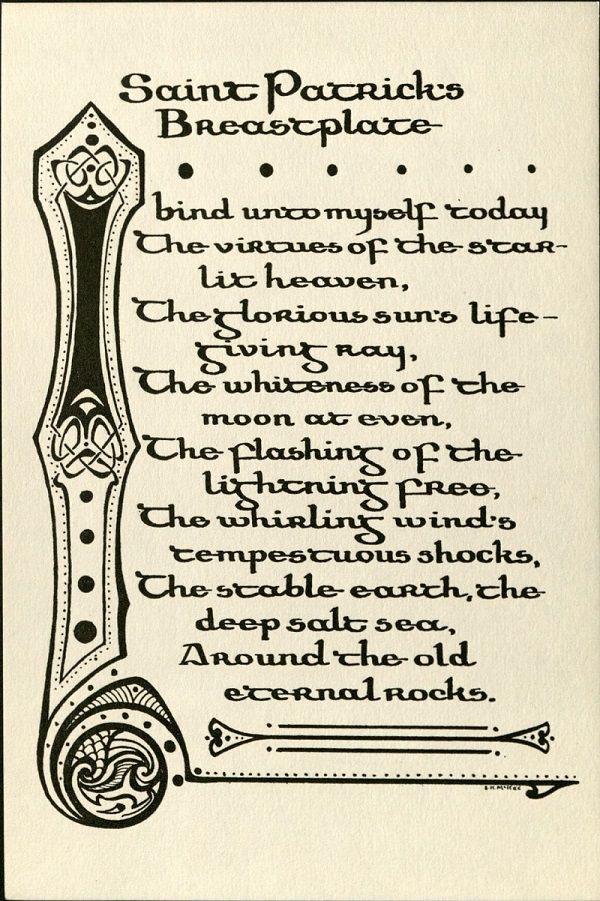 Saint Patrick's
Breastplate
I bind unto myself today
The virtues of the star-
lit heaven,
The glorious sun's life-
giving ray,
The whiteness of the
moon at even,
The flashing of the
lightning free,
The whirling wind's
tempestuous shocks,
The stable earth, the
deep salt sea,
Around the old
eternal rocks.